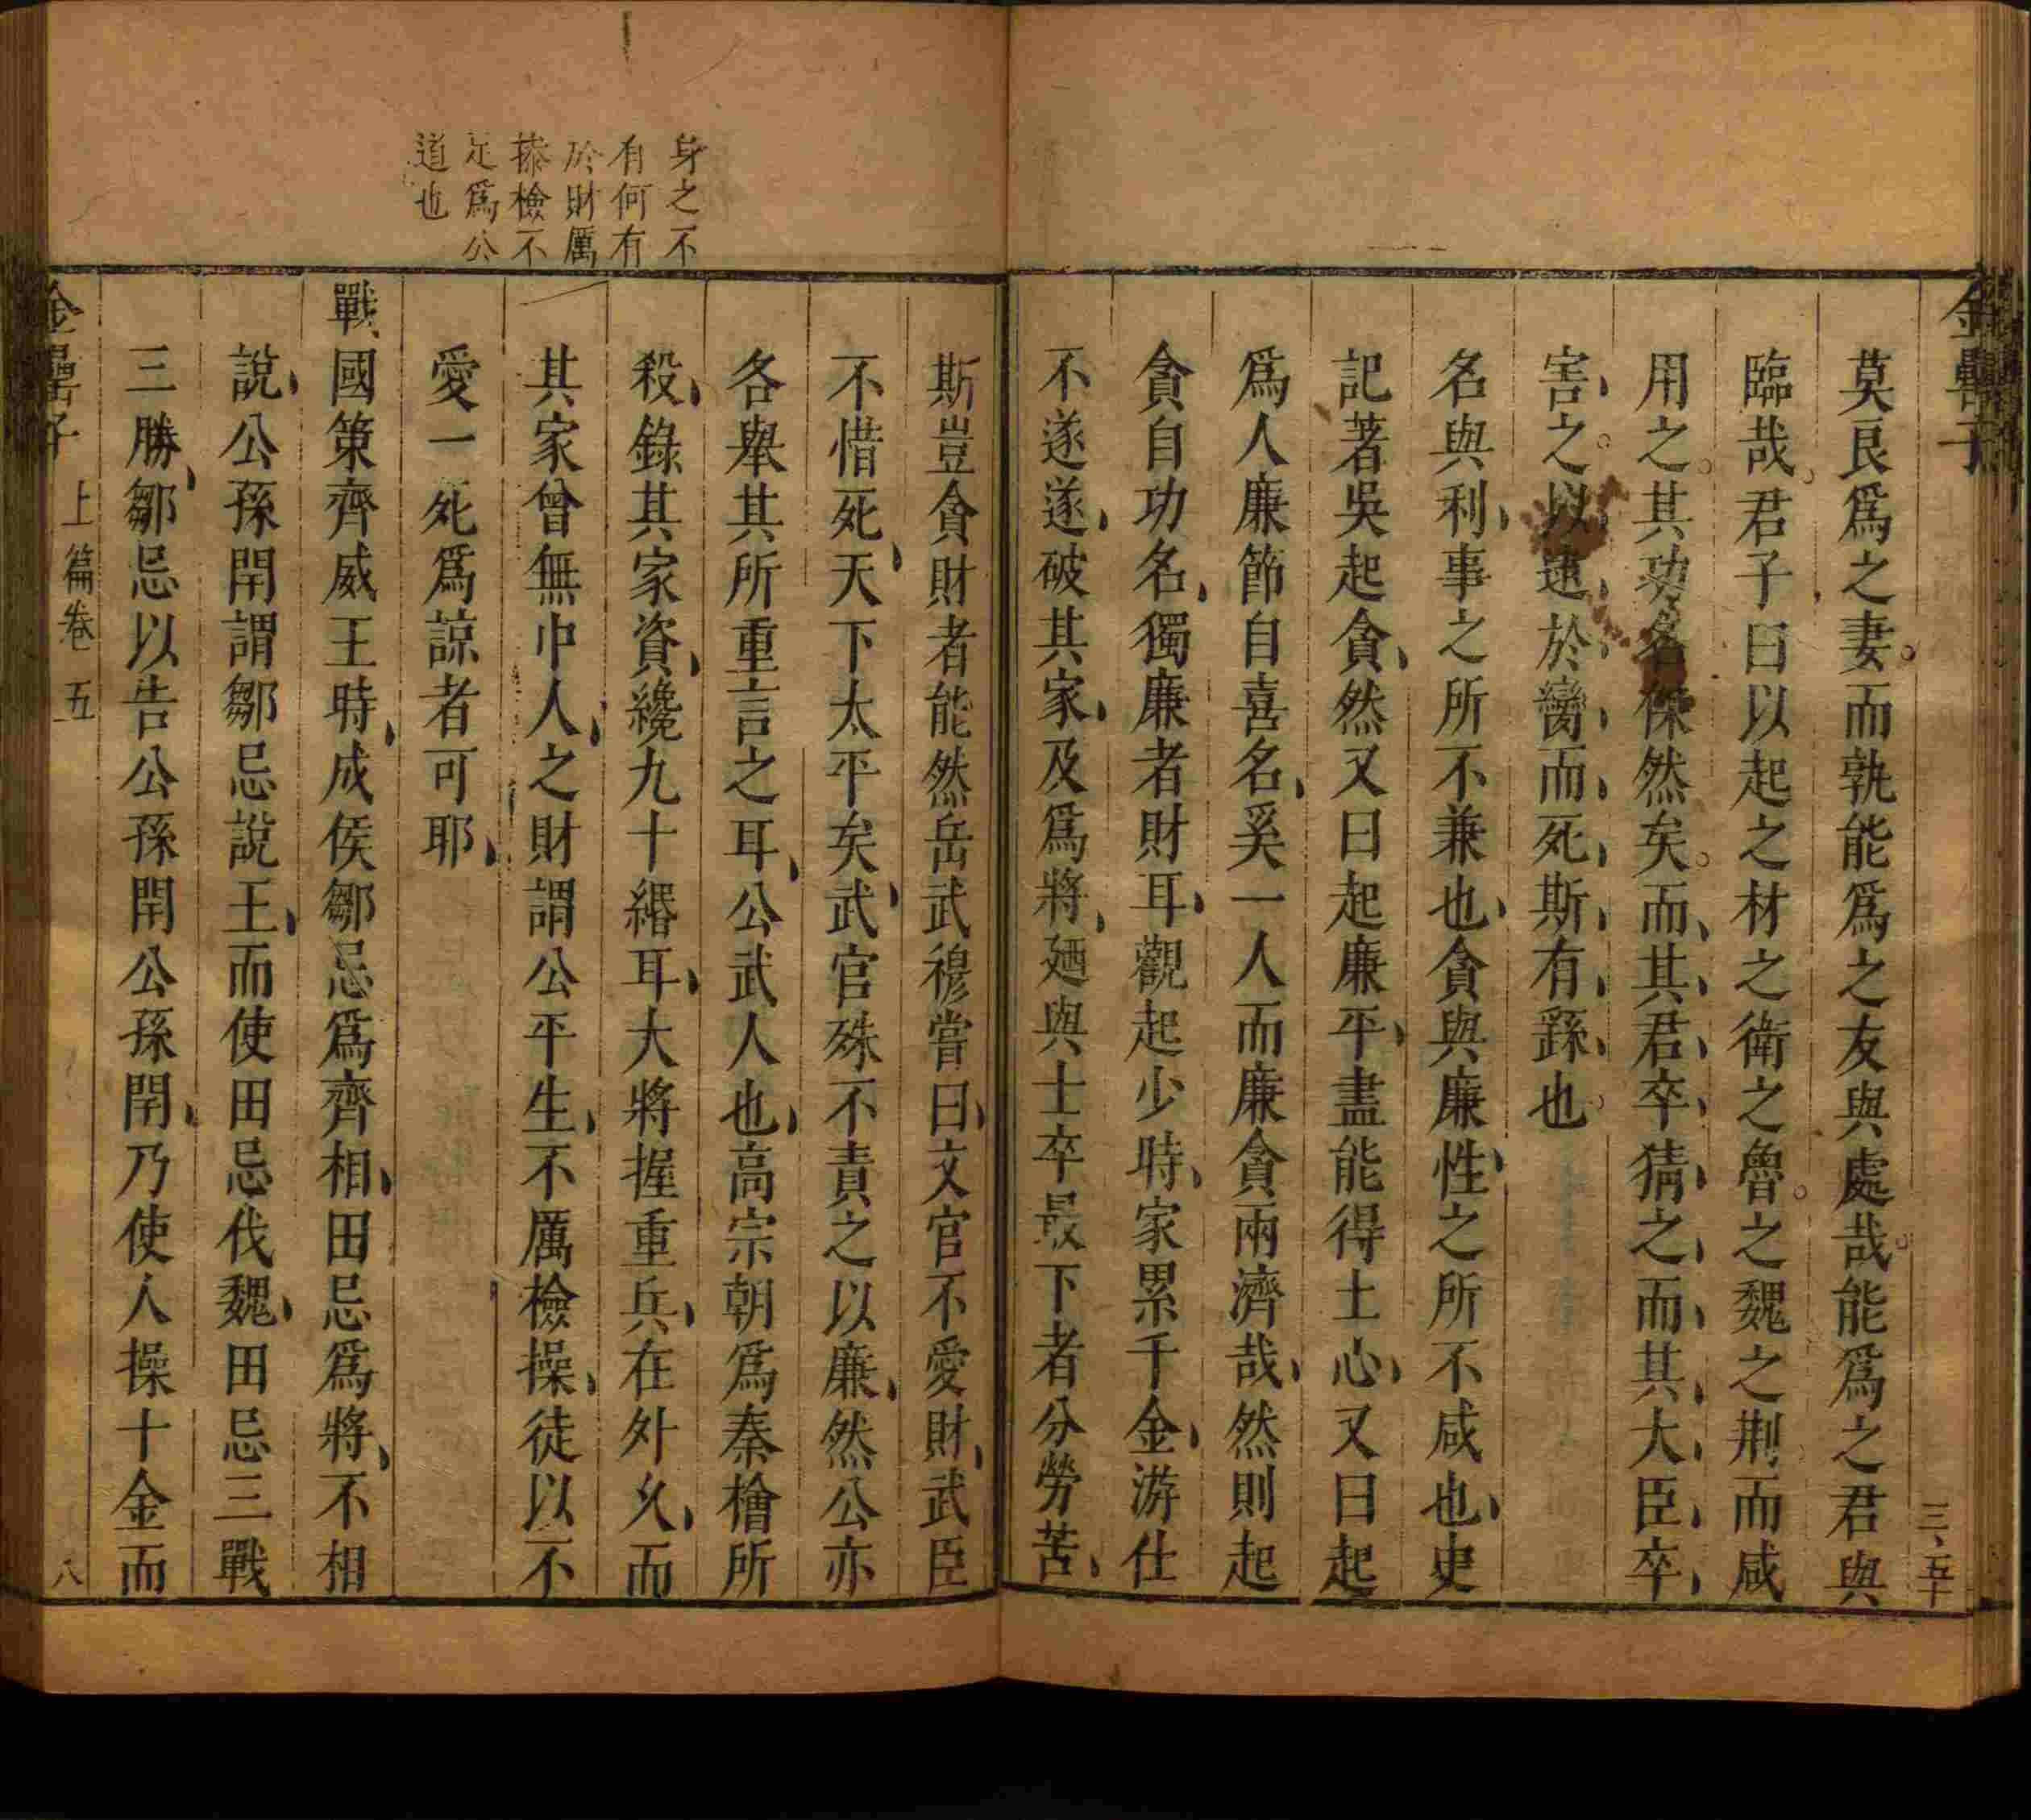 金罍子
三、五十
莫良爲之妻而孰能爲之友與處哉能爲之君與
臨哉君子曰以起之材之衛之魯之魏之荆而咸
用之其功名傑然矣而其君卒猜之而其大臣卒
害之以逃於臠而死斯有繇也
名與利事之所不兼也貪與廉性之所不咸也史
記著吳起貪然又曰起廉平盡能得士心又曰起
爲人廉節自喜名奚一人而廉貪兩濟哉然則起
貪自功名獨廉者財耳觀起少時家累千金游仕
不遂遂破其家及爲將廼與士卒最下者分勞苦
斯豈貪財者能然岳武穆嘗曰文官不愛財武臣
不惜死天下太平矣武官殊不責之以廉然公亦
各舉其所重言之耳公武人也高宗朝爲秦檜所
殺錄其家資纔九十緡耳大將握重兵在外久而
其家曾無中人之財謂公平生不厲檢操徒以不
愛一死爲諒者可耶
戰國策齊威王時成侯鄒忌爲齊相田忌爲將不相
說公孫閈謂鄒忌說王而使田忌伐魏田忌三戰
三勝鄒忌以告公孫閈公孫閈乃使人操十金而
身之不
有何有
於財厲
操檢不
足爲公
道也
金罍子 上篇卷五 八